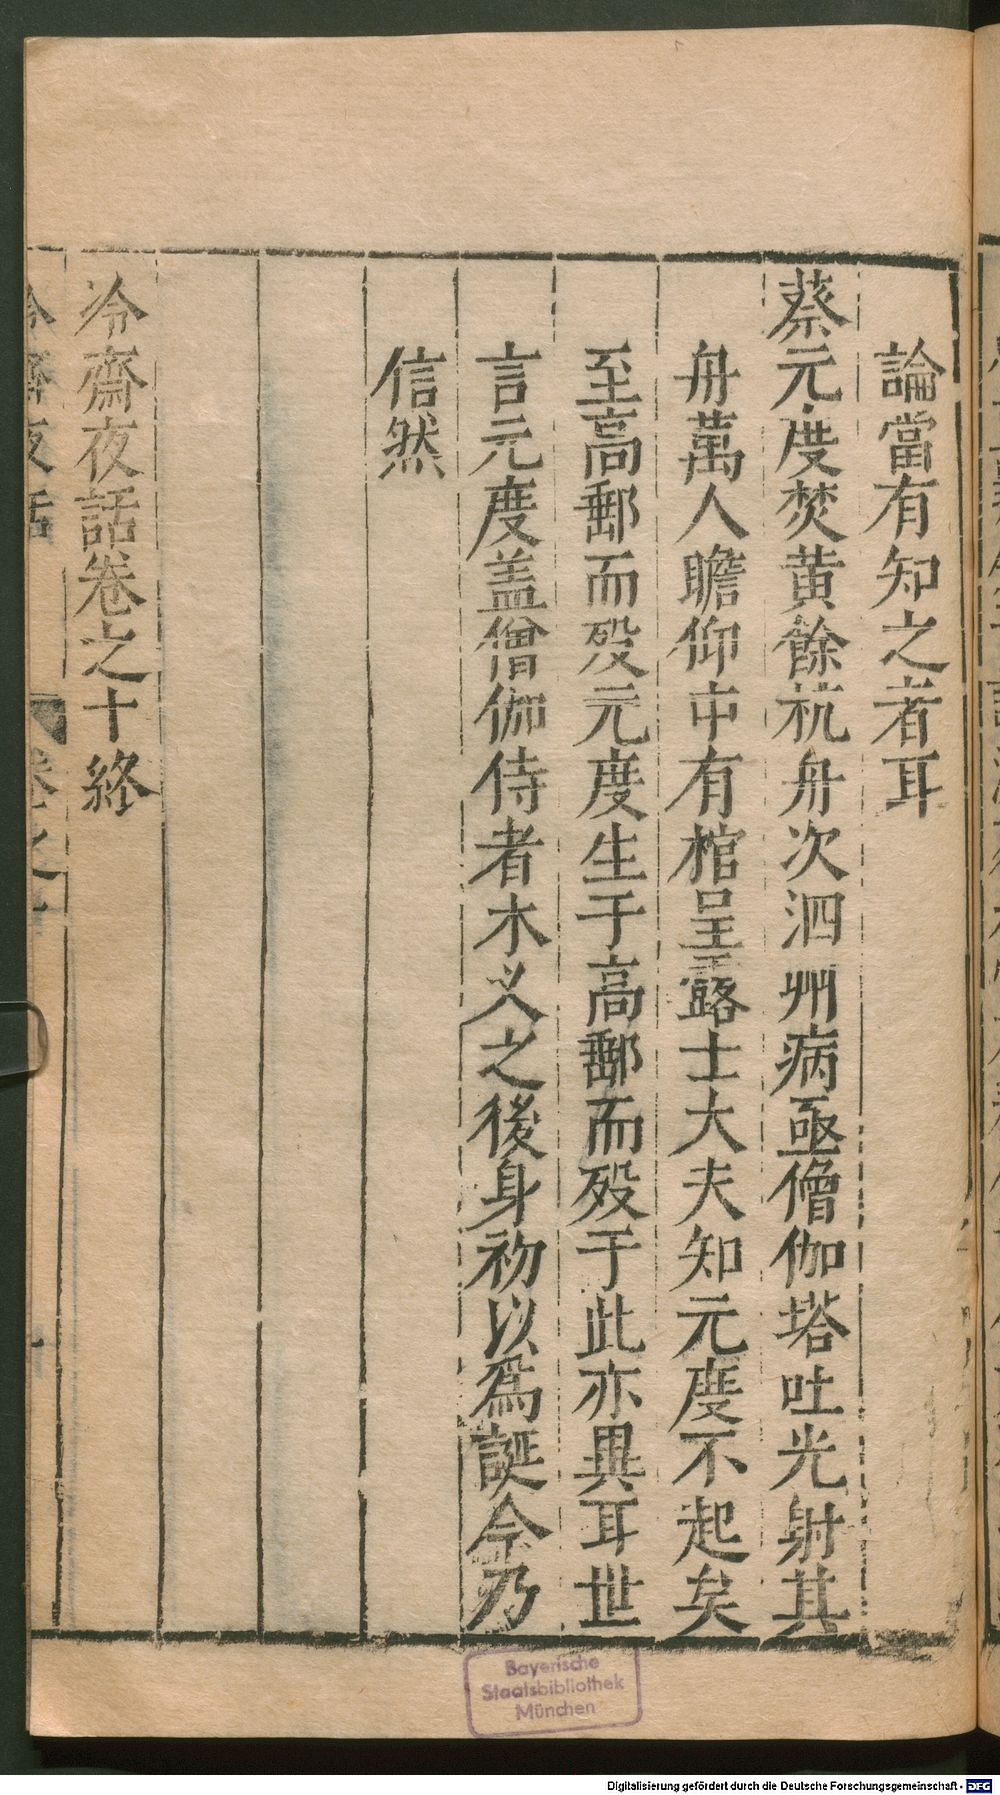 論當有知之者耳
蔡元度焚黄餘杭舟次泗州病亟僧伽塔吐光射其
舟萬人瞻仰中有棺呈露士大夫知元度不起矣
至高郵而殁元度生于高郵而殁于此亦異耳世
言元度盖僧伽侍者木义之後身初以爲誕今乃
信然
冷齋夜話卷之十終
冷齋夜話 卷之十
Bayerische
Staatsbibliothek
München
Digitalisierung gefördert durch die Deutsche Forschungsgemeinschaft - DFG